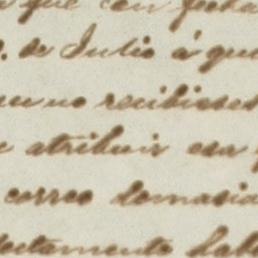 que con fecha
. de Julio á que
no recibiese
atribuir esa
correo demasia
ectamente hab